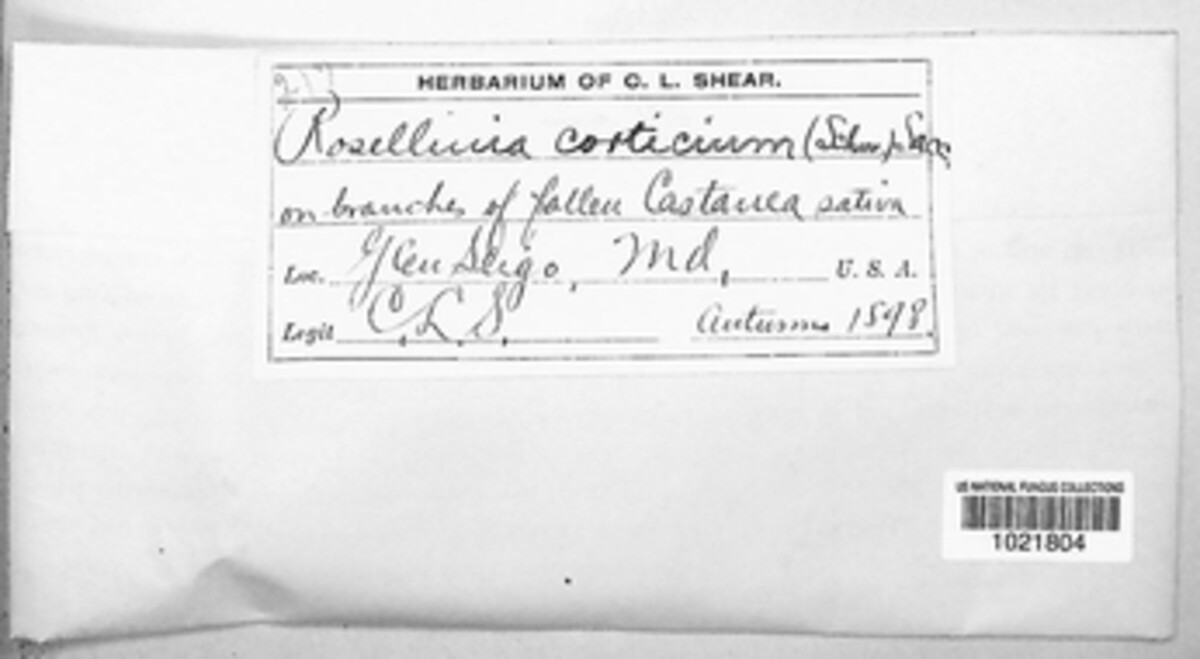 HERBARIUM OF C. L. SHEAR.
Rosellinia corticium (Schw.) Sacc
on branches of fallen Castanea sativa
Loc. Glen Sligo, Md, U. S. A.
Legit C. L. S. Autumn 1898.
US NATIONAL FUNGUS COLLECTIONS
1021804